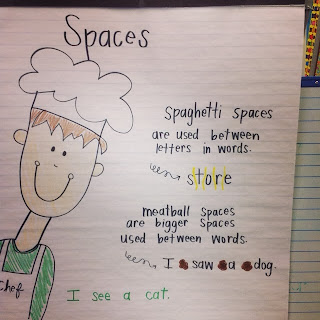 Spaces
Spaghetti spaces
are used between
letters in words.
store
meatball spaces
are bigger spaces
used between words.
I saw a dog.
Chef
I see a cat.